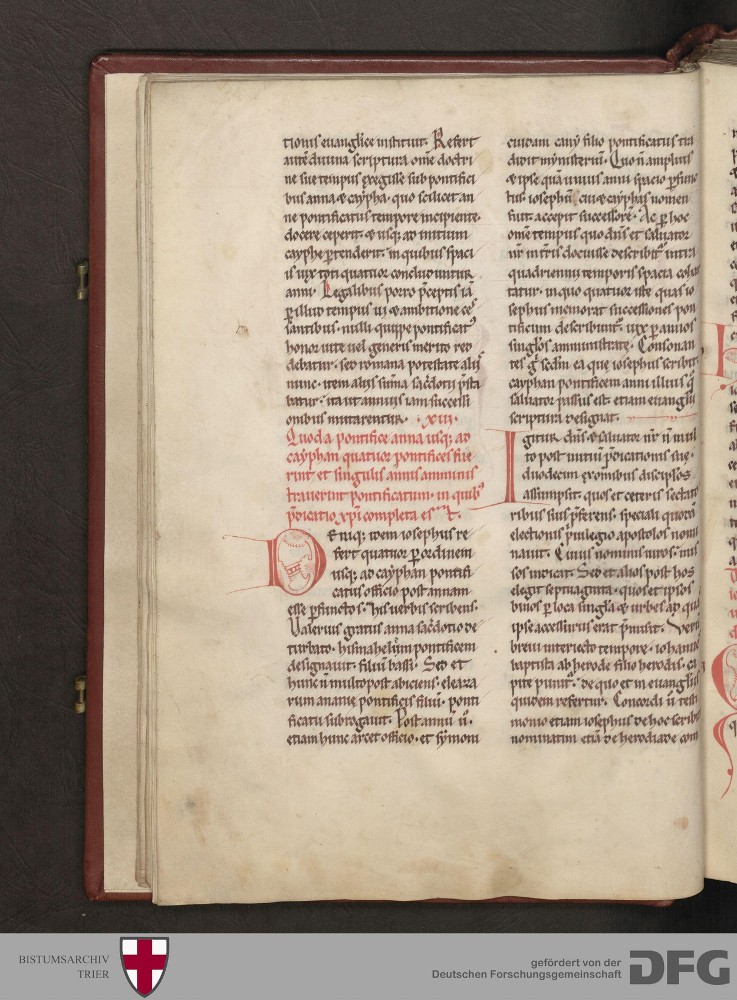 tionis euangl'ice instituit. Refert
autē diuina scriptura omē doctri
ne sue tempus exegisse sub pontifici
bus anna & caypha. quo scilicet an
ne pontificatus tempore incipiente
docere ceperit. & usq; ad initium
cayphe ꝑtenderit. in quibus spaci
is uix toti quattuor concluduntur
anni. Legalibus porro p̄ceptis iā
ꝑ illud tempus ui & ambitione ces
santibus. nulli quippe pontificat9
honor uite uel generis merito red
debatur. sed romana potestate aliis
nunc. item aliis sūma sac̄dotii p̄sta
batur. ita ut annuis iam successi
onibus mutarentur. .xiii.
Quod a pontifice anna usq; ad
cayphan quatuor pontifices fue
rint et singulis annis amminis
trauerint pontificatum. in quib9
p̄dicatio xp̄i completa est.
Deniq; idem iosephus re
fert quatuor ꝑ ordinem
usq; ad cayphan pontifi
catus officio post annam
esse ꝑfunctos. his uerbis scribens.
Valerius gratus anna sac̄dotio de
turbato. hismahelum pontificem
designauit. filiū baffi. Sed et
hunc n̄ multo post abiciens. eleaza
rum ananie pontificis filiū. ponti
ficatu subrogauit. Post annū ū.
etiam hunc arcet officio. et symoni
cuidam canū filio pontificatus tra
didit mynisteriū. Quo n̄ amplius
& ipse quā unius anni spacio ꝑfunc
tus. iosephū cui & cayphas nomen
fuit accepit successorē. Ac ꝑ hoc
omē tempus quo dn̄s et saluator
nr̄ in t̄ris docuisse describit intra
quadriennii temporis spacia coha
tatur. in quo quatuor iste quas io
sephus memorat successiones pon
tificum describunt. uix ꝑ annos
singl'os amministrate. Consonan
tes g̊ sedm̄ ea que iosephus scribit
cayphan pontificem anni illius q̊
saluator passus est. etiam euangl'ii
scriptura designat.
Igitur dn̄s & saluator nr̄ n̄ mul
to post initiū p̄dicationis sue.
duodecim ex omnibus discipl'os
assumpsit. quos et ceteris sectato
ribus suis p̄ferens. speciali quodā
electionis p̄uilegio apostolos nomi
nauit. Cuius nominis uiros. mis
sos indicat. Sed et alios post hos
elegit septuaginta. quos et ipsos
binos ꝑ loca singl'a & urbes ad quas
ipse accessurus erat p̄misit. Verū
breui interiecto tempore. iohannes
baptista ab herode filio herodis. ca
pite punit. de quo et in euangl'iis
quidem refertur. Concordi ū testi
monio etiam iosephus de hoc scribit
nominatim etiā de herodiade com
BISTUMSARCHIV
TRIER
gefördert von der
Deutschen Forschungsgemeinschaft
DFG